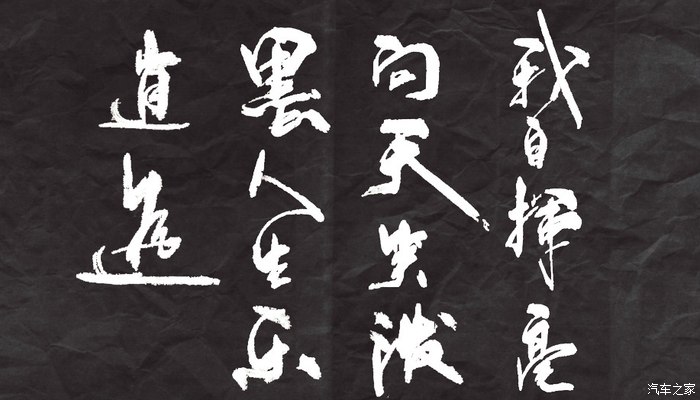 我自揮毫
向天笑泼
墨人生乐
逍遥
汽车之家